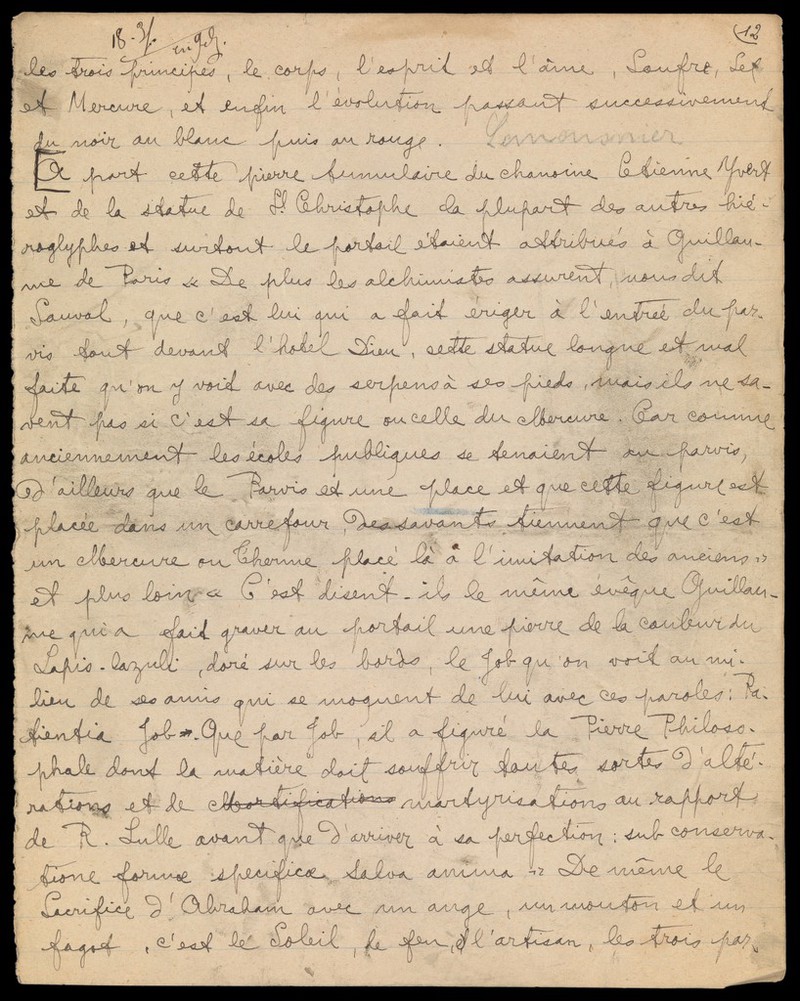 12
les trois principes, le corps, l'esprit et l'âme, Soufre, Sel
et Mercure, et enfin l'évolution passant successivement
du noir au blanc puis au rouge.
A part cette pierre tumulaire du chanoine Etienne Yvert
et de la statue de St Christophe la plupart des autres hié-
roglyphes et surtout le portail étaient attribués à Guillau-
me de Paris « De plus les alchimistes assurent, nous dit
Sauval, que c'est lui qui a fait ériger à l'entrée du par-
vis tout devant l'hotel Dieu, cette statue longue et mal
faite qu'on y voit avec des serpens à ses pieds, mais ils ne sa-
vent pas si c'est sa figure ou celle du Mercure. Car comme
anciennement les écoles publiques se tenaient au parvis,
d'ailleurs que le Parvis est une place et que cette figure est
placée dans un carrefour, des savants tiennent que c'est
un Mercure ou Therme placé là à l'imitation des anciens »
et plus loin « C'est disent-ils le même évêque Guillau-
me qui a fait graver au portail une pierre de la couleur du
Lapis-lazuli, doré sur les bords, le Job qu'on voit au mi-
lieu de ses amis qui se moquent de lui avec ces paroles: Pa-
tientia Job ». Que par Job, il a figuré la Pierre Philoso-
phale dont la matière doit souffrir toutes sortes d'alté-
rations et de Mortifications martyrisations au rapport
de R. Lulle avant que d'arriver à sa perfection: sub conserva-
tione formæ specificæ salva anima » De même le
Sacrifice d'Abraham avec un ange, un mouton et un
fagot, c'est le Soleil, le feu, et l'artisan, les trois par-